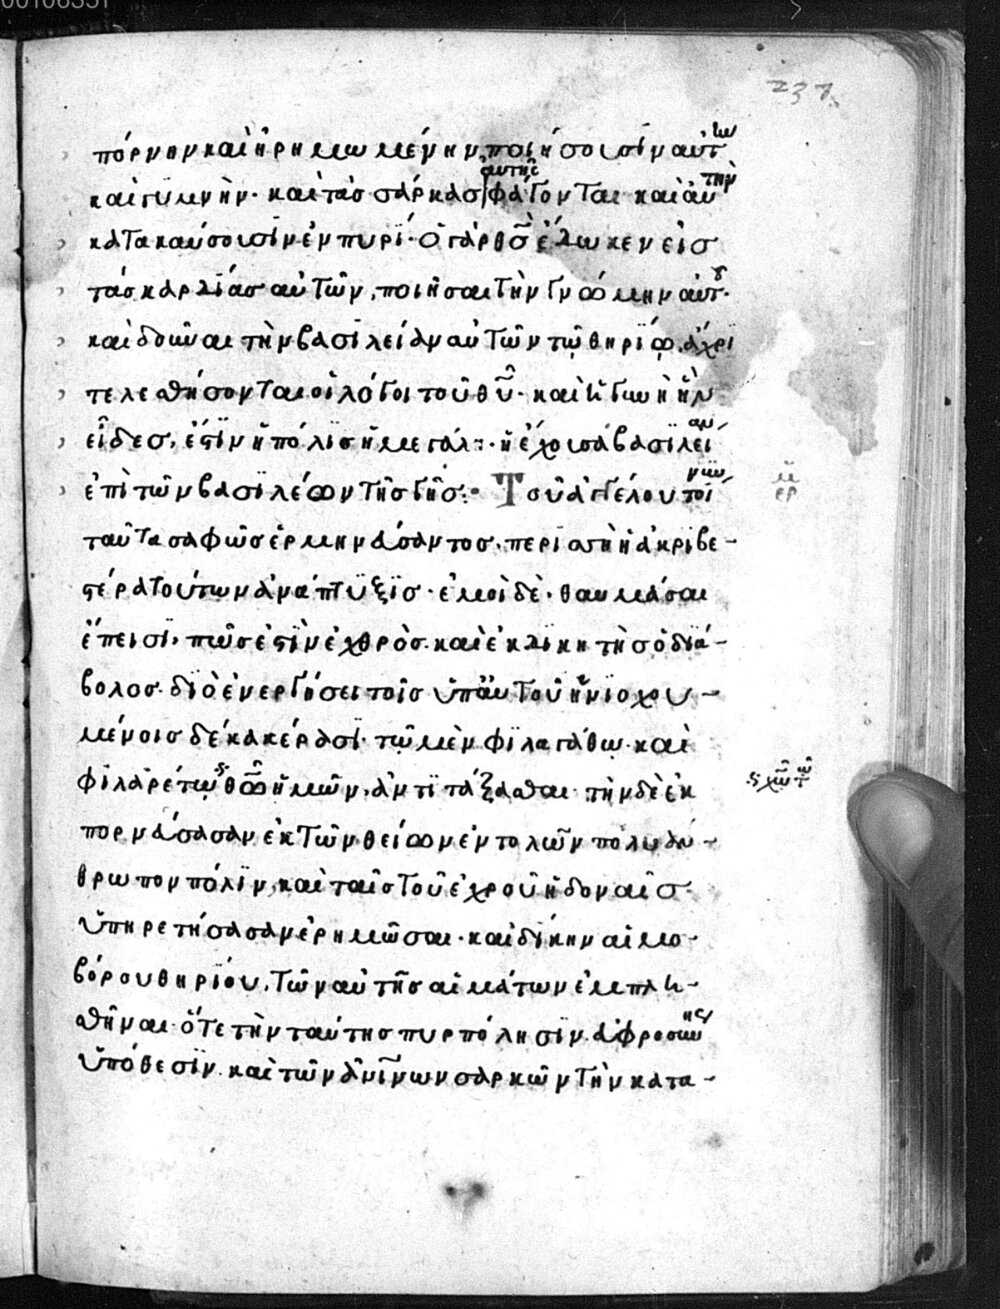 00106351
237
πόρνην καὶ ἠρημωμένην ποιήσουσιν αὐτ ὼ
αυτῆς
καὶ γυμνὴν· καὶ τὰσ σάρκασ φάγονται καὶ αὐ τὴν
κατακαύσουσιν ἐν πυρί· ὁ γὰρ θσ̅ ἔδωκεν εἰσ
τὰσ καρδίασ αὐτῶν, ποιῆσαι τὴν γνώμην αὐτ·
καὶ δοῦναι τὴν βασιλείαν αὐτῶν τῷ θηρίω, ἄχρι
τελεσθήσονται οἱ λόγοι τοῦ θυ̅· καὶ ἡ γυνὴ ἣν
εἶδεσ, ἐστιν ἡ πόλισ ἡ μεγάλη· ἡ ἔχουσα βασιλεί αν
ἐπὶ τῶν βασιλέων τῆσ γῆσ:· Τοῦ ἀγγέλου τοί νυν
μη
ερ
ταῦτα σαφῶσ ἑρμηνεύσαντοσ· περιττὴ ἡ ἀκριβε-
στέρα τούτων ἀνάπτυξισ· ἐμοὶ δὲ· θαυμάσαι
ἔπεισι· πῶσ ἐστιν ἐχθρὸσ· καὶ ἐκδικητὴσ ὁ διά-
βολοσ· διὸ ἐνεργήσει τοῖσ ὑπ αὐτοῦ ἡνιοχου-
μένοισ δέκα κέρασι· τῷ μὲν φιλαγάθω· καὶ
φιλαρέτω θω̅ ἡμῶν, ἀντιτάξασθαι· τὴν δὲ ἐκ
πορνεύσασαν ἐκ τῶν θείων ἐντολῶν πολυάν-
θρωπον πόλιν, καὶ ταῖσ τοῦ ἐχροῦ ἡδοναῖσ
ὑπηρετήσασαν ἐρημῶσαι· καὶ δίκην αἱμο-
βόρου θηρίου, τῶν αὐτῆσ αἱμάτων ἐμπλη-
σθῆναι· ὅτε τὴν ταύτησ πυρπόλησιν ἀφροσυν ησ
ὑπόθεσιν· καὶ τῶν ἀνίνων σαρκῶν τὴν κατα-